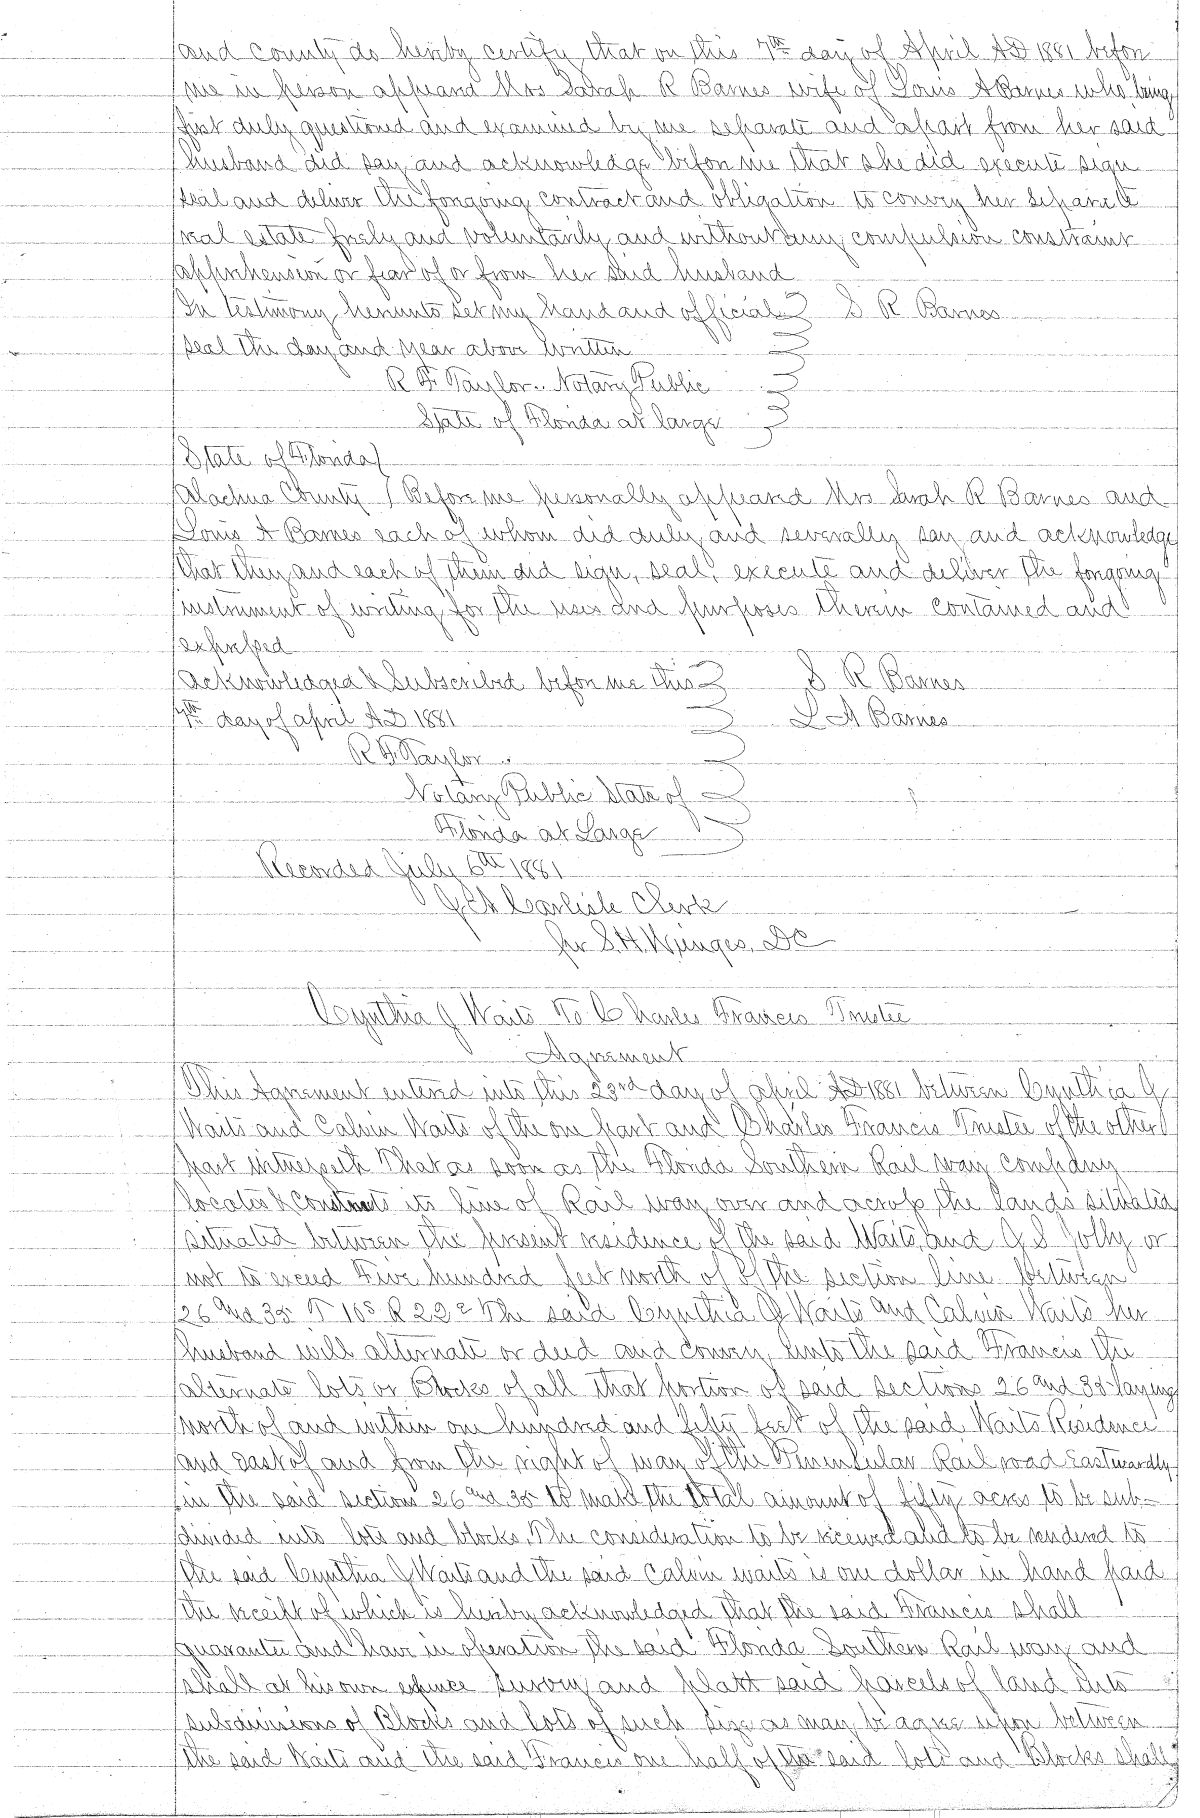 and County do hereby certify that on this 7th day of April AD 1881 before
me in person appeard Mrs Sarah R Barnes wife of Louis A Barnes who being
first duly questioned and examined by me separate and apart from her said
husband did say and acknowledge before me that she did execute sign
seal and deliver the forgoing contract and obligation to convey her separate
real estate freely and voluntarily and without any compulsion constraint
apprehension or fear of or from her said husband
In testimony hereunto set my hand and official S R Barnes
seal the day and year above written
R F Taylor.. Notary Public
State of Florida at large
State of Florida
Alachua County Before me personally appeared Mrs Sarah R Barnes and
Louis A Barnes each of whom did duly and severally say and acknowledge
that they and each of them did sign, seal, execute and deliver the forgoing
instrument of writing for the uses and purposes therein contained and
expressed
Acknowledged & Subscribed before me this S R Barnes
7th day of april AD 1881 L A Barnes
R F Taylor ..
Notary Public State of
Florida at Large
Recorded July 6th 1881
J A Carlisle Clerk
per S. H. Wienges, DC
Cynthia J Waits To Charles Francis Trustee
Agreement
This Agreement entered into this 23rd day of april AD 1881 between Cynthia J
Waits and Calvin Waits of the one part and Charles Francis Trustee of the other
part Witnesseth That as soon as the Florida Southern Rail way company
locates & Constructs its line of Rail way over and across the lands situated
situated between the present residence of the said Waits, and J S Jolly or
not to exceed Five hundred feet north of of the section line between
26 and 35 T 10 S R 22 E The said Cynthia J Waits and Calvin Waits her
husband will alternate or deed and convey unto the said Francis the
alternate lots or Blocks of all that portion of said sections 26 and 35 laying
north of and within one hundred and fifty feet of the said Waits Residence
and East of and from the right of way of the Peninsular Rail road Eastwardly
in the said sections 26 and 35 to make the total amount of fifty acres to be sub=
divided into lots and blocks. The consideration to be received and to be rendered to
the said Cynthia J Waits and the said Calvin waits is one dollar in hand paid
the receipt of which is hereby acknowledged that the said Francis shall
guarantee and have in operation the said Florida Southern Rail way and
shall at his own expence survey and platt said parcels of land into
subdivisions of Blocks and lots of such size as may be agree upon between
the said Waits and the said Francis one half of the said lots and Blocks shall